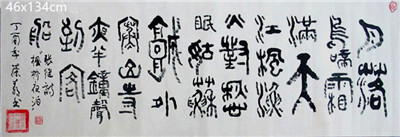 46x134cm
月落
烏啼霜
滿天
江楓漁
火對愁
眠姑蘇
城外
寒山寺
夜半鐘聲
到客
船
張继詩
楓橋夜泊
丁酉
書